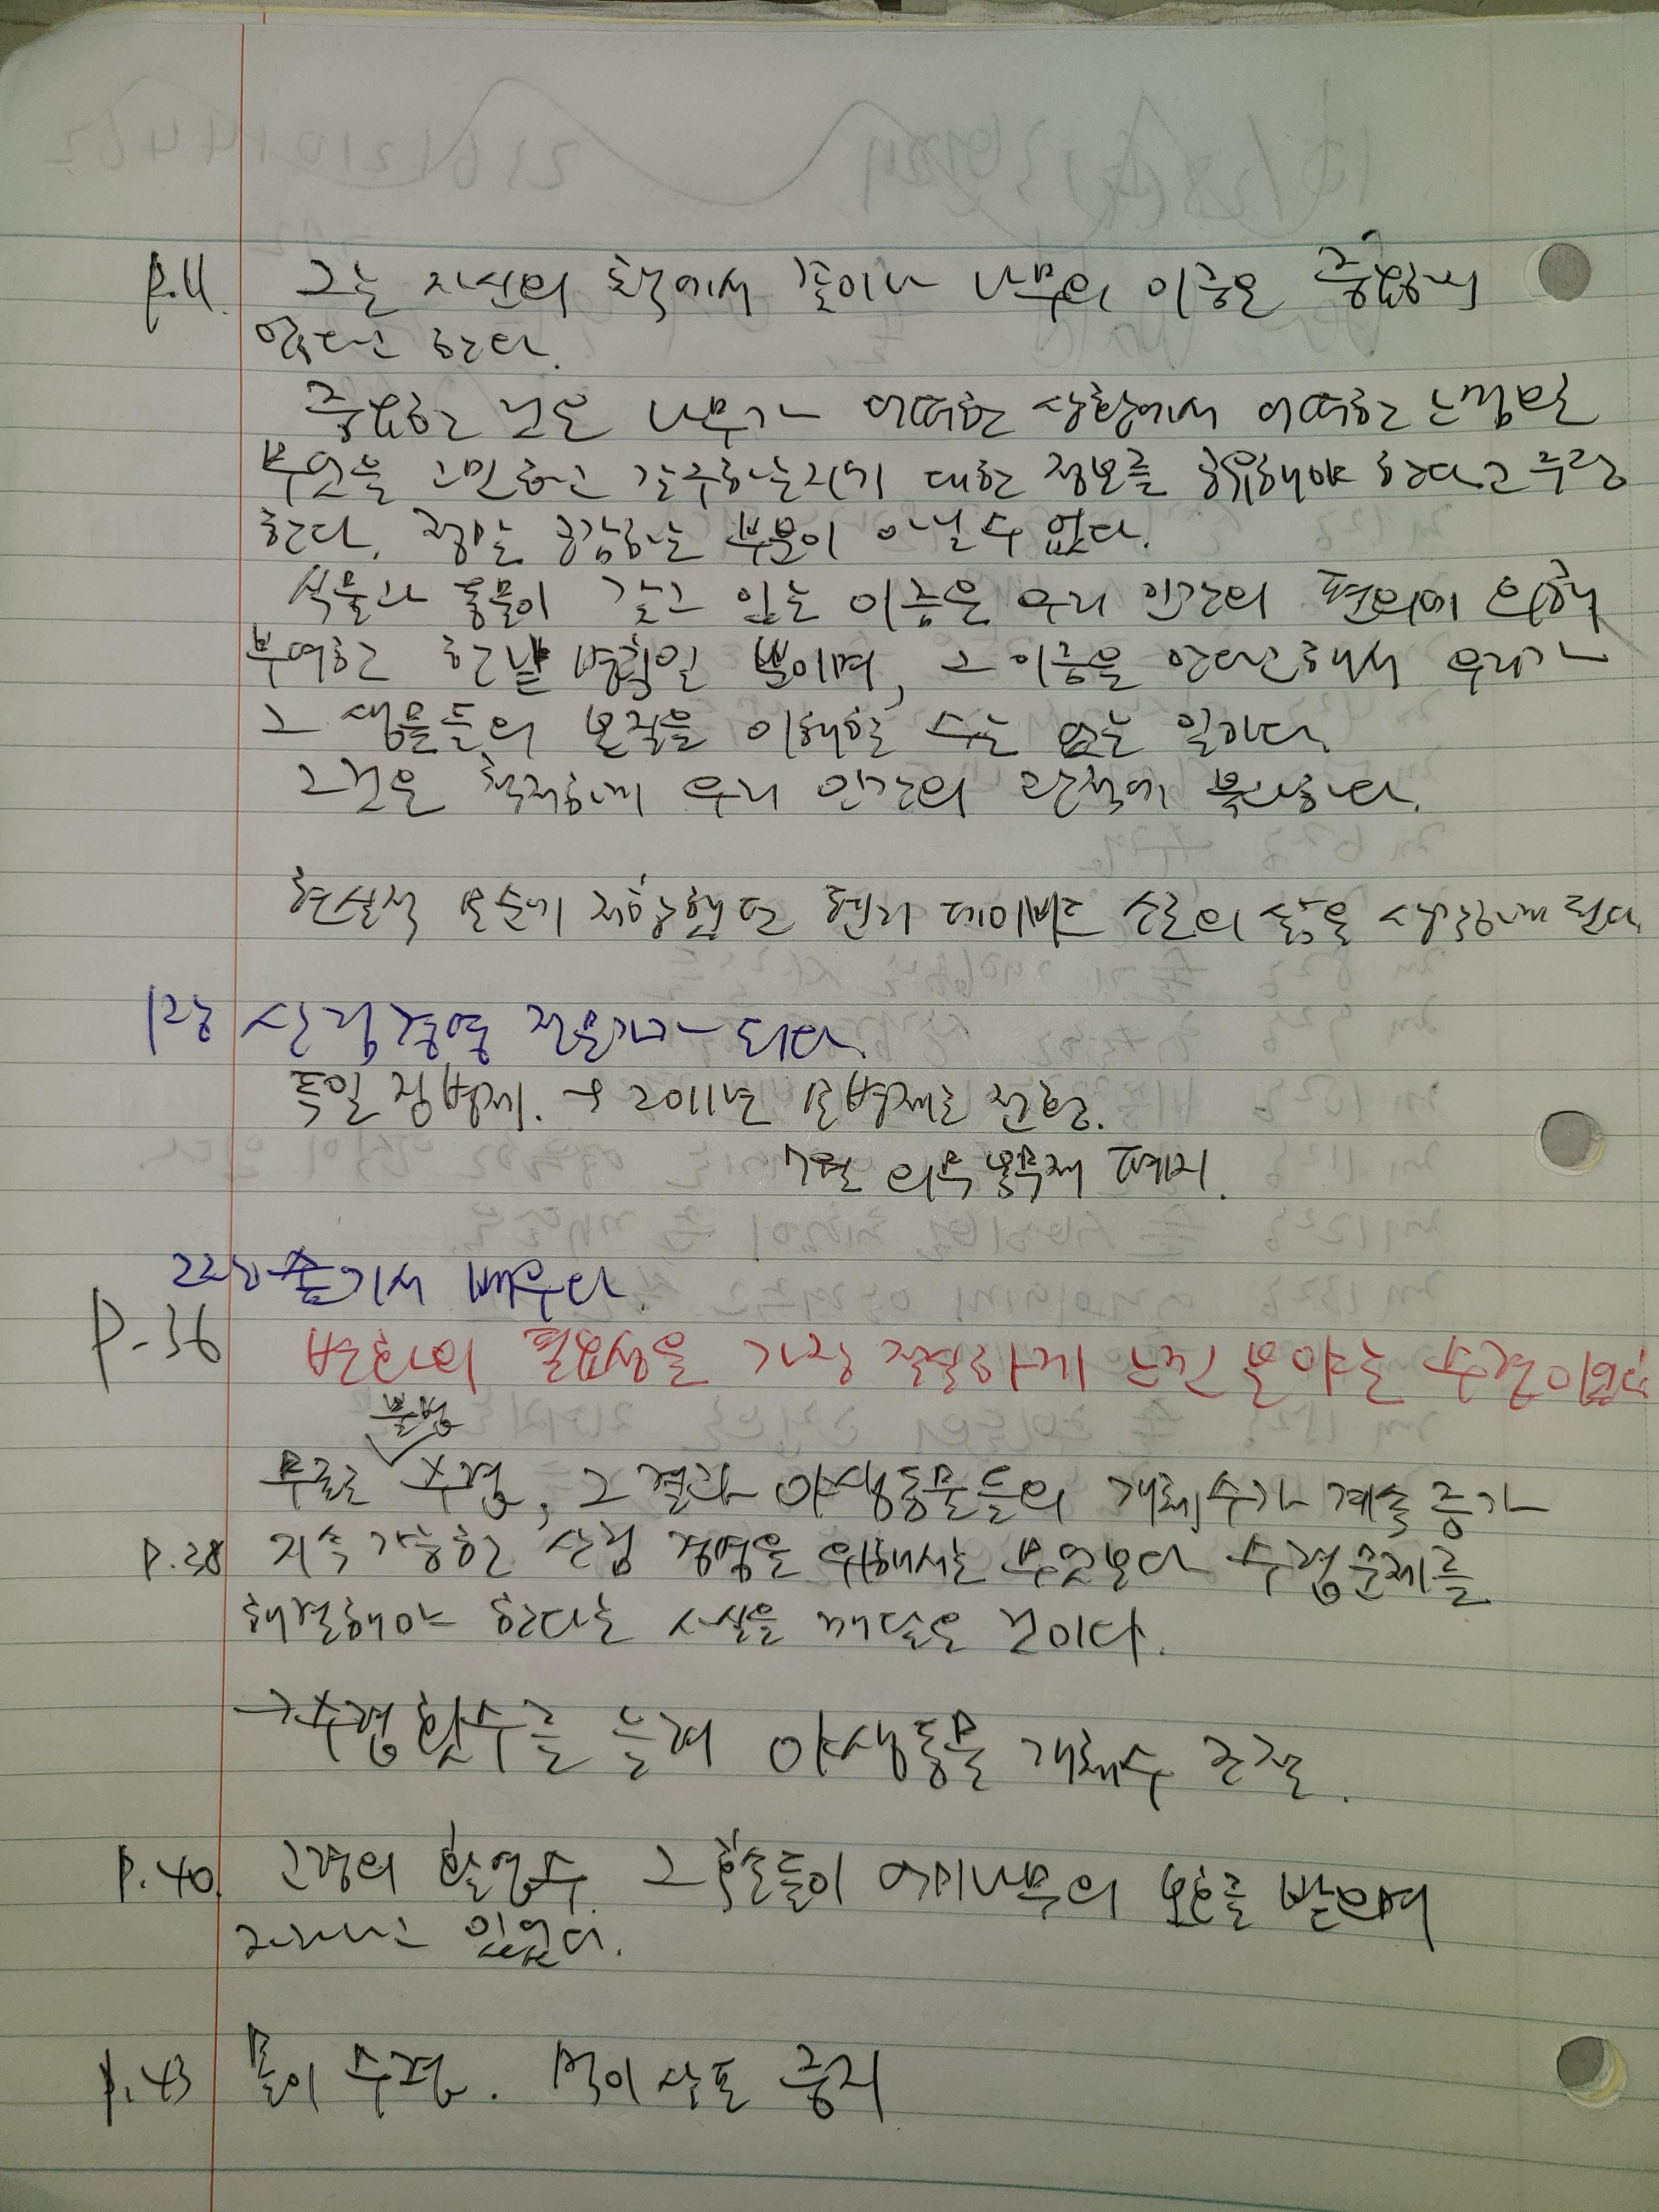 p.11. 그는 자신의 책에서 꽃이나 나무의 이름은 중요하지
않다고 한다.
중요한 것은 나무가 어떠한 상황에서 어떠한 느낌으로
무엇을 고민하고 갈구하는지에 대한 정보를 공유해야 한다고 주장
한다. 정말 공감하는 부분이 아닐 수 없다.
식물과 동물이 갖고 있는 이름은 우리 인간의 편의에 의해
부여한 한낱 명칭일 뿐이며, 그 이름을 안다고 해서 우리가
그 생물들의 본질을 이해할 수는 없는 일이다.
그것은 철저하게 우리 인간의 관점에 불과하다.
현실적 모순에 저항했던 헨리 데이비드 소로의 삶을 생각하게 된다.
1장 산림경영 전문가가 되다.
독일 징병제. → 2011년 모병제로 전환.
7월 의무복무제 폐지.
2장 숲에서 배우다.
P-36 변화의 필요성을 가장 절실하게 느낀 분야는 수렵이었다.
불법
무료로 수렵, 그 결과 야생동물들의 개체수가 계속 증가
P.38 지속 가능한 산림 경영을 위해서는 무엇보다 수렵문제를
해결해야 한다는 사실을 깨달은 것이다.
→수렵 횟수를 늘려 야생동물 개체수 조절.
P.40. 고령의 활엽수. 그 후손들이 어미나무의 보호를 받으며
자라나고 있었다.
p.43 몰이 수렵. 먹이 살포 중지